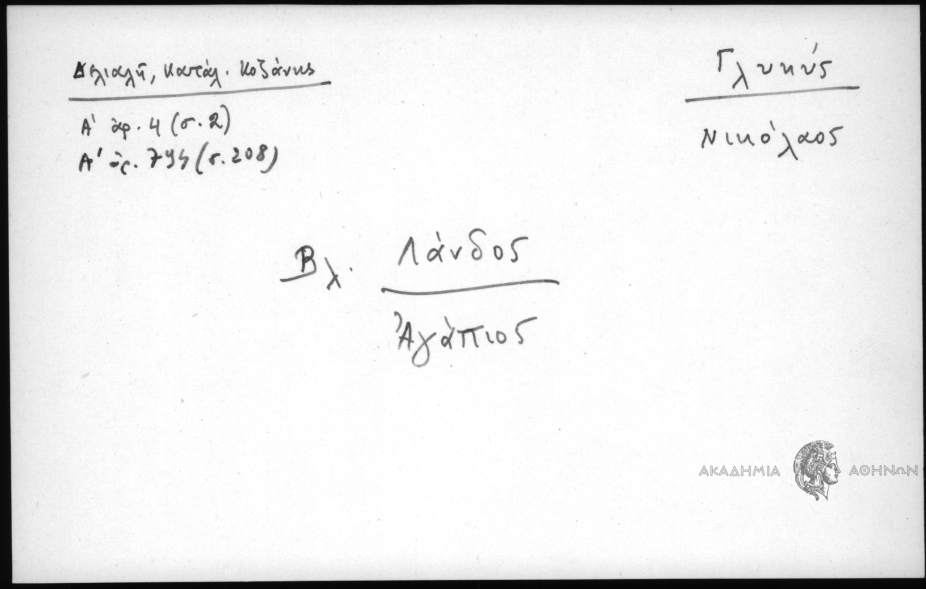 Δελιαλῆ, Κατάλ. Κοζάνης
Α' ἀρ. 4 (σ. 2)
Α' ἀρ. 794 (σ. 208)
Γλυκύς
Νικόλαος
Βλ. Λάνδος
Ἀγάπιος
ΑΚΑΔΗΜΙΑ ΑΘΗΝΩΝ